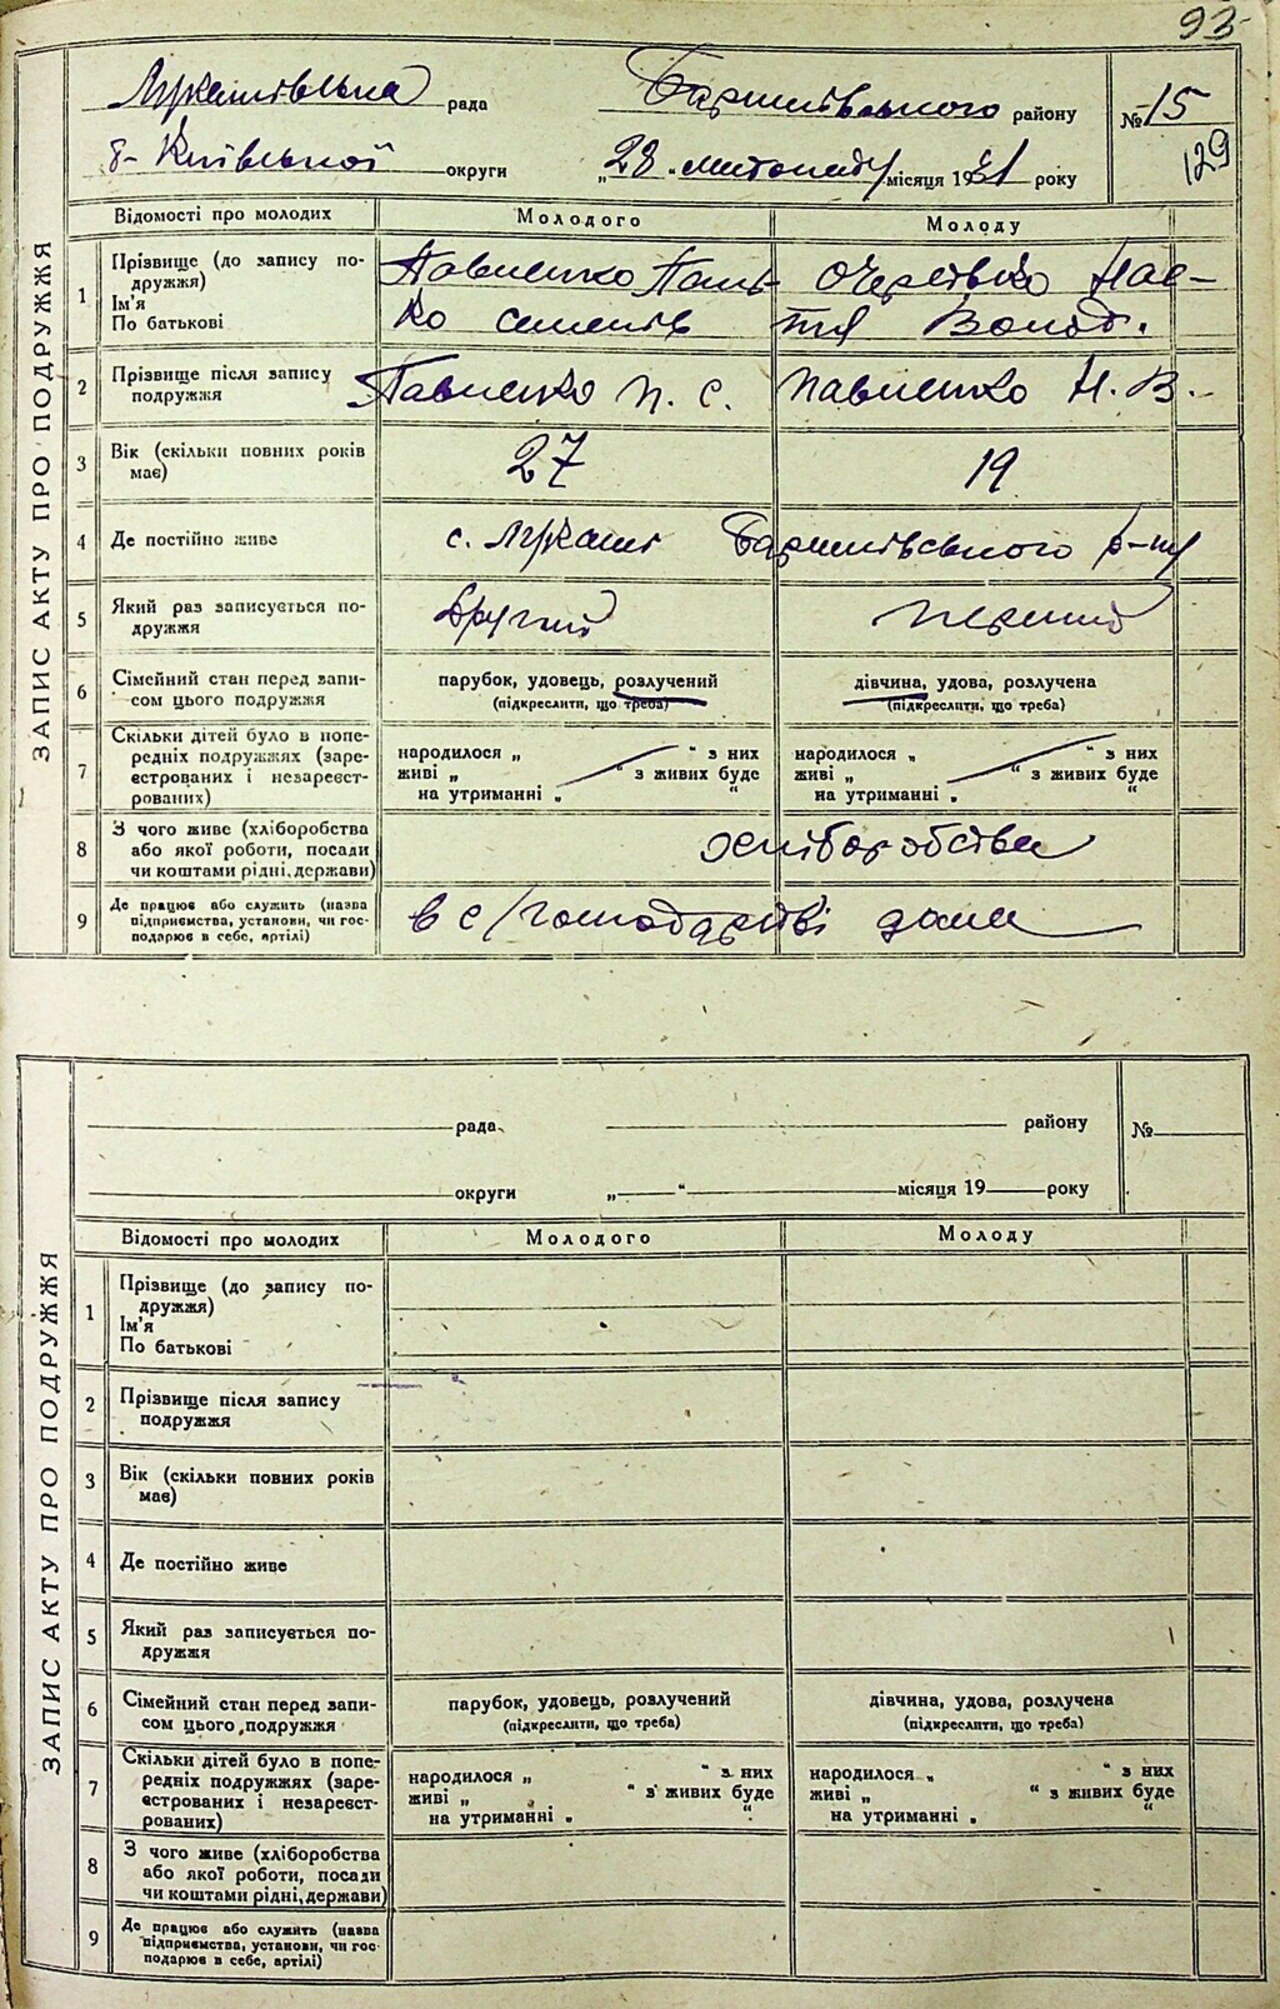 93
Лукашівська рада Баришівського району № 15
б- Київської округи „28" листопаду місяця 1931 року
129
ЗАПИС АКТУ ПРО ПОДРУЖЖЯ
Відомості про молодих Молодого Молоду
1 Прізвище (до запису по-
дружжя)
Ім'я
По батькові
Павленко Пань-
ко Семенів
Очерівко Нас-
тя Волод.
2 Прізвище після запису
подружжя
Павленко П. С. Павленко Н. В.
3 Вік (скільки повних років
має)
27 19
4 Де постійно живе с. Лукаші Баришівського р-ну
5 Який раз записується по-
дружжя
другий перший
6 Сімейний стан перед запи-
сом цього подружжя
парубок, удовець, розлучений
(підкреслити, що треба)
дівчина, удова, розлучена
(підкреслити, що треба)
7 Скільки дітей було в попе-
редніх подружжях (заре-
єстрованих і незареєст-
рованих)
народилося „ " з них
живі „ " з живих буде
на утриманні „ "
народилося „ " з них
живі „ " з живих буде
на утриманні „ "
8 З чого живе (хліборобства
або якої роботи, посади
чи коштами рідні, держави)
хліборобства
9 Де працює або служить (назва
підприємства, установи, чи гос-
подарює в себе, артілі)
в с/господарстві дома
ЗАПИС АКТУ ПРО ПОДРУЖЖЯ
рада району №
округи „ " місяця 19 року
Відомості про молодих Молодого Молоду
1 Прізвище (до запису по-
дружжя)
Ім'я
По батькові
2 Прізвище після запису
подружжя
3 Вік (скільки повних років
має)
4 Де постійно живе
5 Який раз записується по-
дружжя
6 Сімейний стан перед запи-
сом цього подружжя
парубок, удовець, розлучений
(підкреслити, що треба)
дівчина, удова, розлучена
(підкреслити, що треба)
7 Скільки дітей було в попе-
редніх подружжях (заре-
єстрованих і незареєст-
рованих)
народилося „ " з них
живі „ " з живих буде
на утриманні „ "
народилося „ " з них
живі „ " з живих буде
на утриманні „ "
8 З чого живе (хліборобства
або якої роботи, посади
чи коштами рідні, держави)
9 Де працює або служить (назва
підприємства, установи, чи гос-
подарює в себе, артілі)